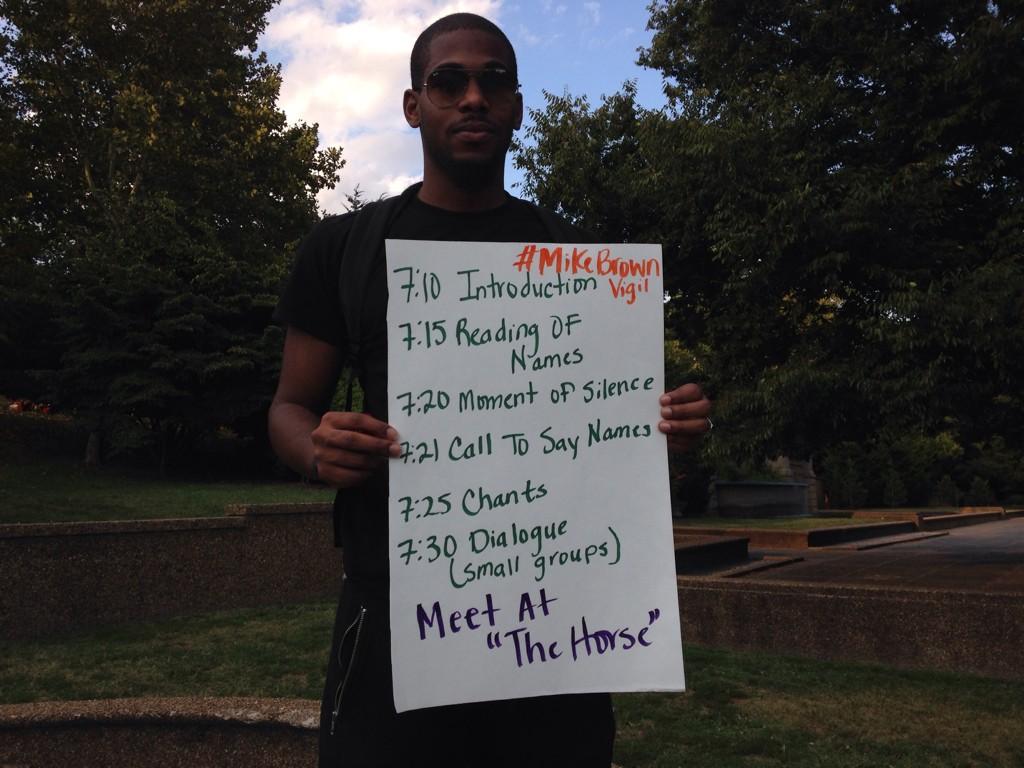 #MikeBrown
Vigil
7:10 Introduction
7:15 Reading OF
Names
7:20 Moment of Silence
7:21 Call To Say Names
7:25 Chants
7:30 Dialogue
(small groups)
Meet At
"The Horse"